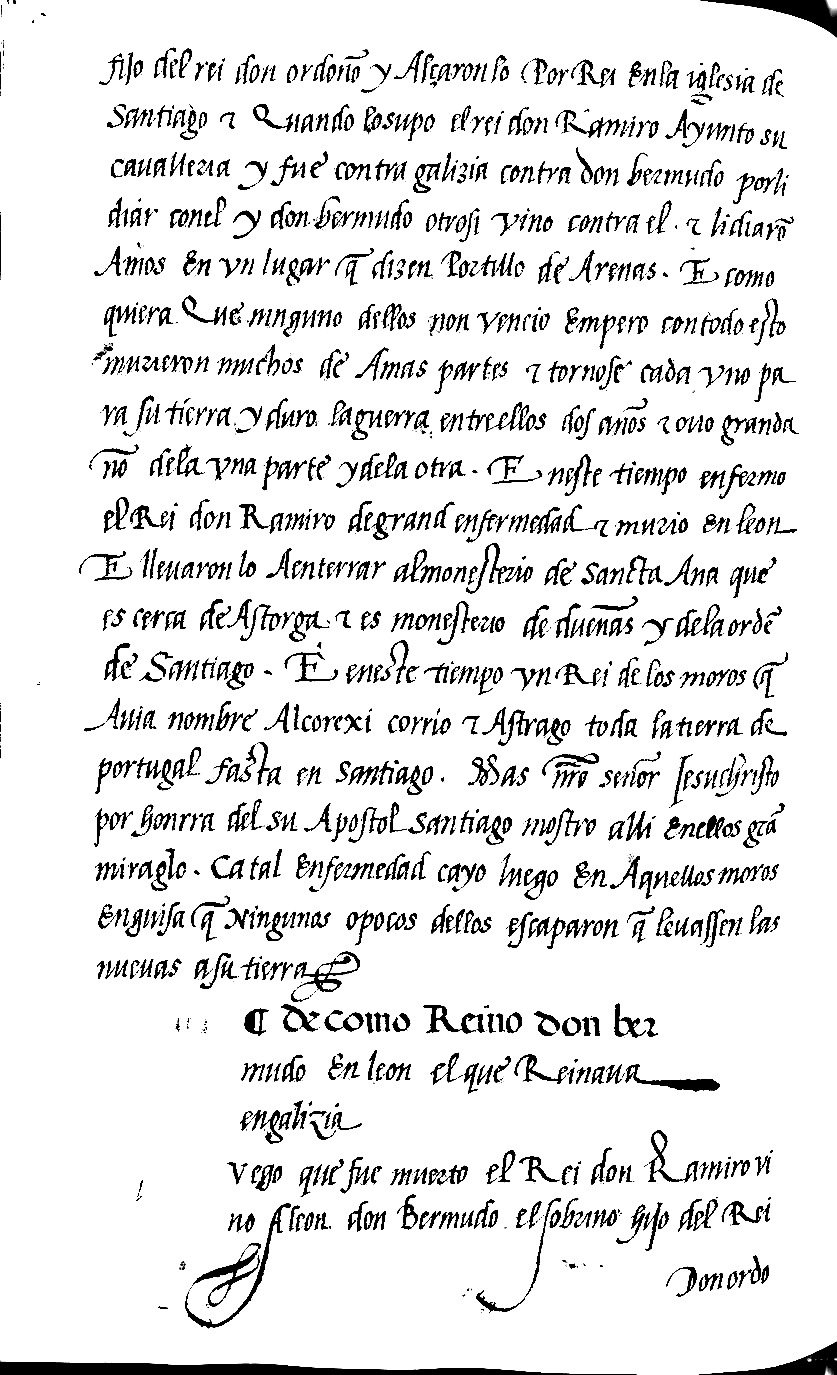 fijo del rei don ordoño y Alçaronlo Por Rei Enla iglesia de
Santiago ⁊ Quando losupo el rei don Ramiro Ayunto su
cauallería y fue contra galizia contra don bermudo porli
diar conel y don bermudo otrosi vino contra el. ⁊ lidiarõ
Amos En vn lugar q̃ dizen Portillo de Arenas. E como
quiera Que ninguno dellos non vencio Empero contodo esto
murieron muchos de Amas partes ⁊ tornose cada vno pa
ra su tierra y duro laguerra entreellos dos años ⁊ ouo granda
ño dela vna parte ydela otra. Eneste tiempo enfermo
el Rei don Ramiro degrand enfermedad ⁊ murio En leon
E lleuaronlo Aenterrar almonesterio de Sancta Ana que
es cerca de Astorga ⁊ es monesterio de dueñas y dela ordẽ
de Santiago. E eneste tiempo vn Rei de los moros q̃
Auia nombre Alcorexi corrio ⁊ Astrago toda la tierra de
portugal fasta en Santiago. Mas nr̃o señor Jesuchristo
por honrra del su Apostol Santiago mostro alli Enellos grã
miraglo. Ca tal Enfermedad cayo luego En Aquellos moros
Enguisa q̃ Ningunos opocos dellos escaparon q̃ leuassen las
nueuas asu tierra
¶ de como Reino don ber
mudo En leon el que Reinaua
engalizia
vego que fue muerto el Rei don Ramiro vi
no Aleon don Bermudo el sobrino hijo del Rei
Don ordo